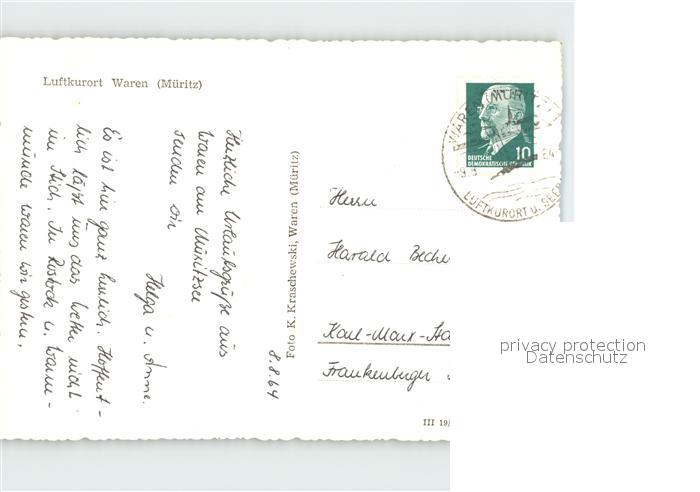 Luftkurort Waren (Müritz)
8.8.64
Herzliche Urlaubsgrüße aus
Waren am Müritzsee
senden dir
Helga u. Anne.
Es ist hier ganz herrlich. Hoffent-
lich läßt uns das Wetter nicht
im Stich. In Rostock u. Warne-
münde waren wir gestern.
Foto K. Kraschewski, Waren (Müritz)
WAREN (MÜRITZ)
10
DEUTSCHE
DEMOKRATISCHE REPUBLIK
LUFTKURORT U.
Herrn
Harald Beche
Karl-Marx-Sta
Frankenberger
III 19/
privacy protection
Datenschutz